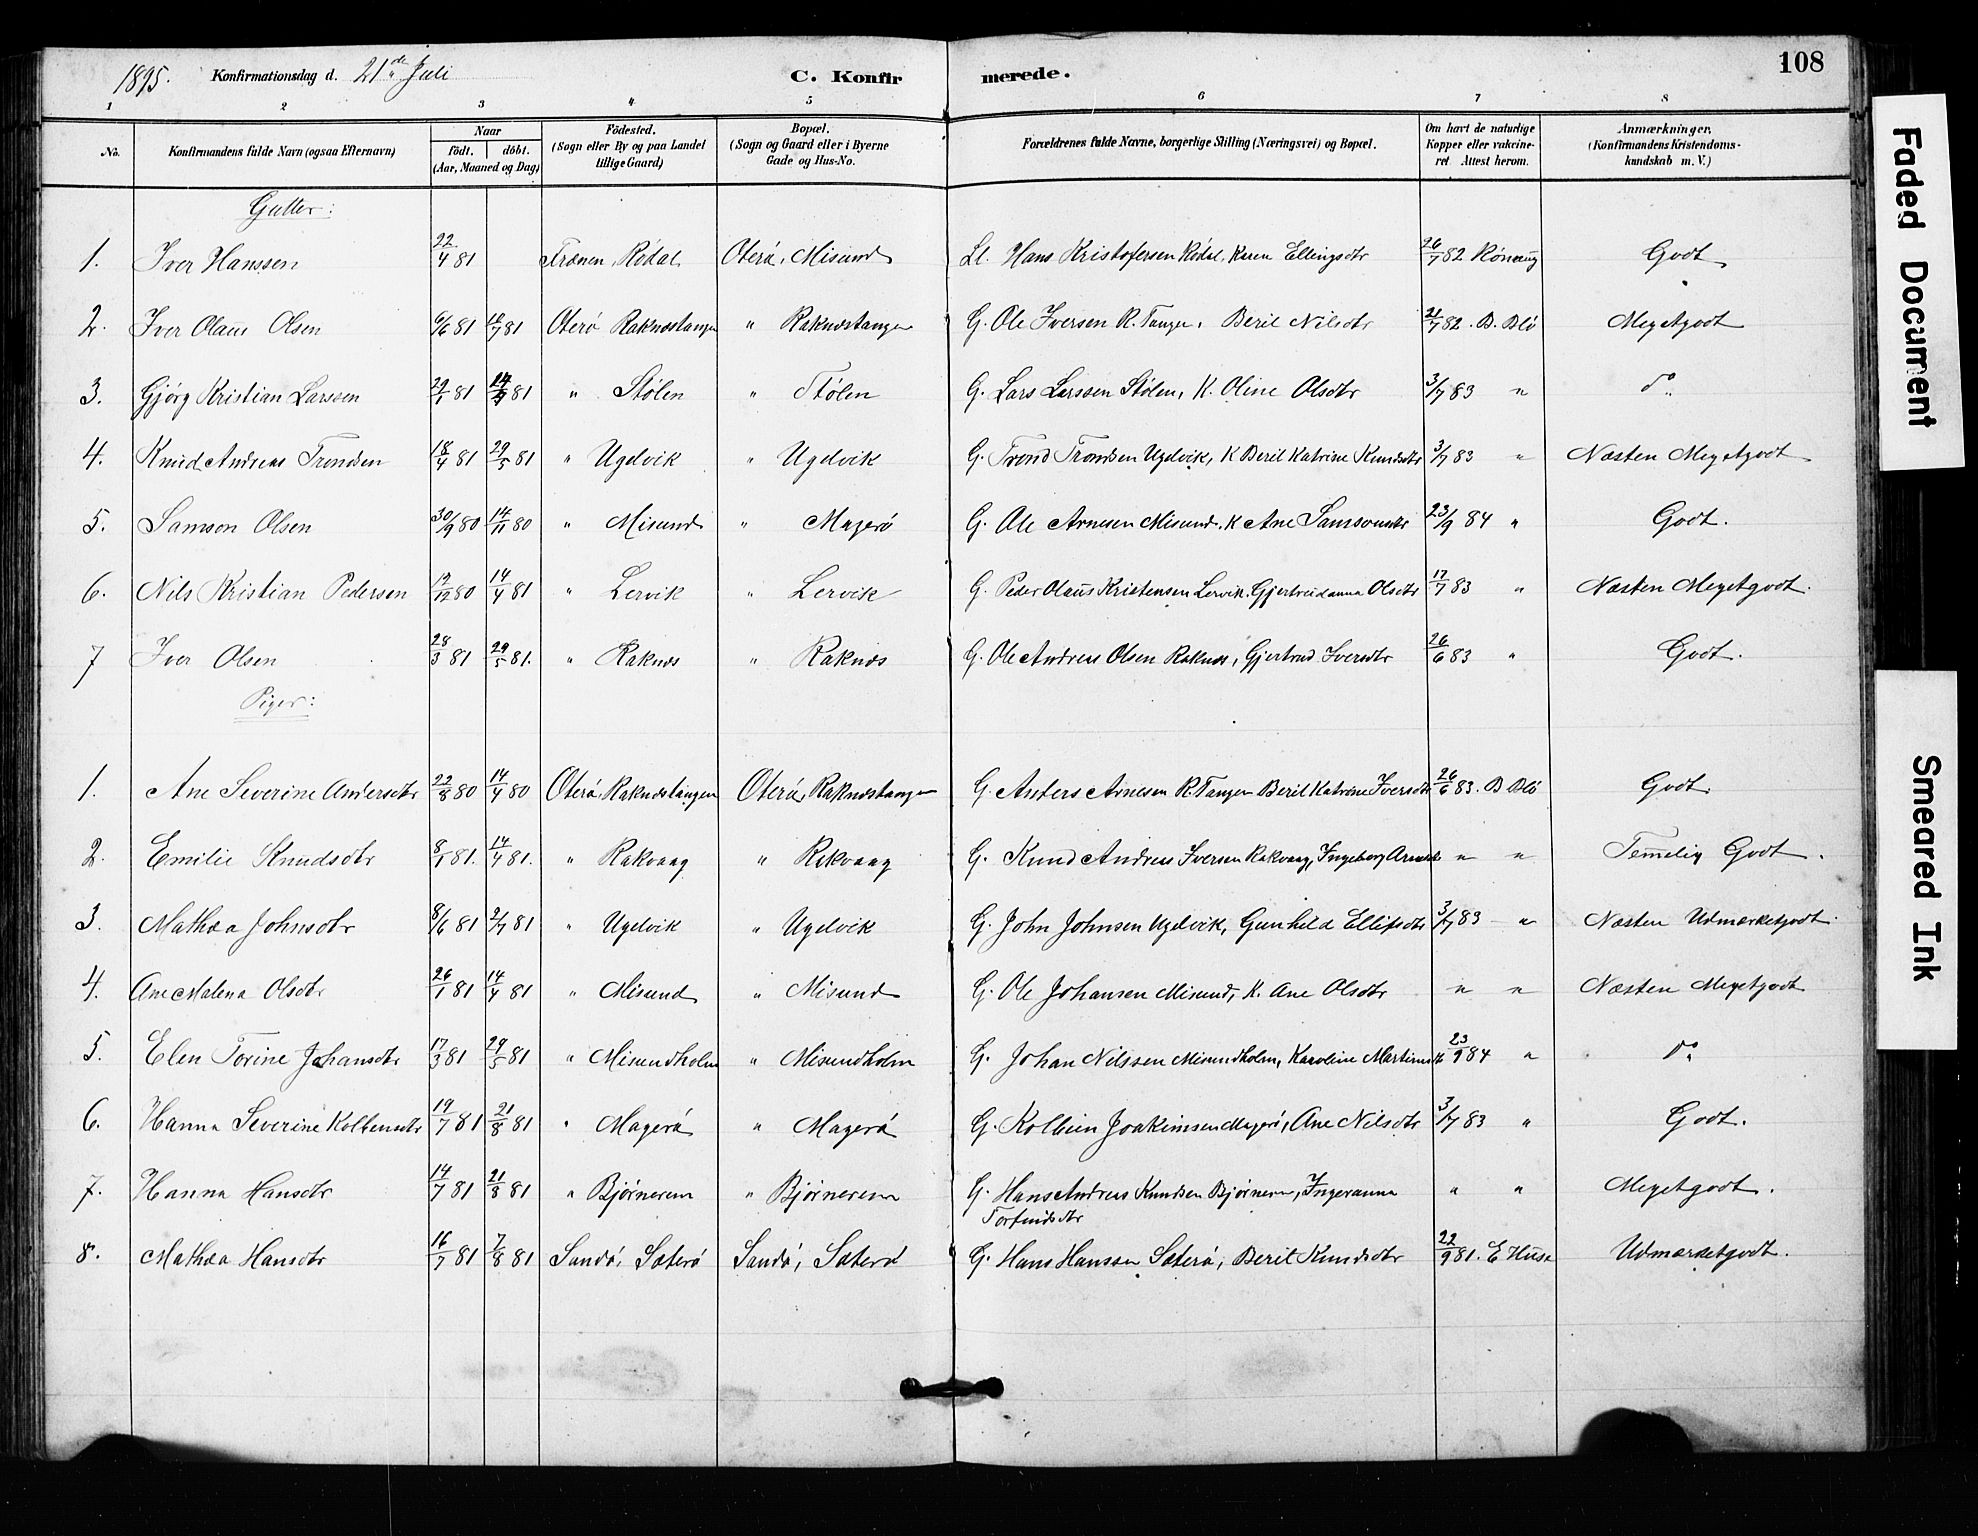 108
1895. Konfirmationsdag d. 21de Juli C. Konfirmerede.
1 2 3 4 5 6 7 8
No. Konfirmandens fulde Navn (ogsaa Efternavn) Naar födt. döbt. (Aar, Maaned og Dag) Födested. (Sogn eller By og paa Landet tillige Gaard) Bopæl. (Sogn og Gaard eller i Byerne Gade og Hus-No. Forældrenes fulde Navne, borgerlige Stilling (Næringsvei) og Bopæl. Om havt de naturlige Kopper eller vakcineret. Attest herom. Anmærkninger. (Konfirmandens Kristendomskundskab m. V.)
Gutter:
1. Iver Hanssen 22/4 81 Frænen, Rødal Oterö, Misund Hans Kristofersen Rødal, Karen Ellingsdtr 26/7 82 Godt
2. Iver Olaus Olsen 6/6 81 /7 81 Oterö Raknestangen " Raknestangen G. Ole Iversen R. Tangen, Beril Nilsdtr 21/7 82. B. Blö Megetgodt
3. Gjörg Kristian Larssen 29/1 81 14/ 81 " Stølen " Stølen G. Lars Larssen Stølen, K. Oline Olsdtr 3/7 83 " do
4. Knud Andreas Trondsen 18/4 81 29/5 81 " Ugelvik " Ugelvik G. Trond Trondsen Ugelvik, K Beril Katrine Knudsdtr 3/7 83 " Næsten Megetgodt
5. Samson Olsen 30/9 80 14/11 80 " Misund " Magerö G. Ole Arnesen Misund, K Ane Samsonsdtr 23/9 84 " Godt.
6. Nils Kristian Pedersen /12 80 14/4 81 " Lervik " Lervik G. Peder Olaus Kristensen Lervik, Gjertrudanna Olsdtr 17/7 83 " Næsten Megetgodt.
7 Iver Olsen 28/3 81 29/5 81. " Raknes " Raknes G. Ole Andreas Olsen Raknes, Gjertrud Iversdtr 26/6 83 " Godt.
Piger:
1. Ane Severine Andersdtr 22/8 80 14/4 80 Oterö, Raknestangen Oterö, Raknestangen G. Anders Arnesen R. Tangen Beril Katrine Iversdtr 26/6 83. B Blö Godt.
2. Emilie Knudsdtr 8/1 81. 14/4 81. " Rakvaag " Rakvaag G. Knud Andreas Iversen Rakvaag, Ingeborg " " Temmelig Godt.
3. Mathea Johnsdtr 8/6 81 2/7 81 " Ugelvik " Ugelvik G. John Johnsen Ugelvik, Gunhild Ellifsdtr 3/7 83 " Næsten Udmærketgodt
4. Ane Malena Olsdtr 26/1 81 14/4 81 " Misund " Misund G. Ole Johansen Misund, K. Ane Olsdtr " " Næsten Megetgodt
5. Elen Torine Johansdtr 17/3 81 29/5 81 " Misundholm " Misundholm G. Johan Nilssen Misundholm, Karoline Martinusdtr 23/9 84 " do
6. Hanna Severine Kolbensdtr 19/7 81 21/8 81 " Magerö " Magerö G. Kolbein Joakimsen Magerö, Ane Nilsdtr 3/7 83 " Godt.
7. Hanna Hansdtr 14/7 81 21/8 81 " Bjørnerem " Bjørnerem G. Hans Andreas Knudsen Bjørnerem, Ingeranna " " Megetgodt.
Torfinsdtr
8. Mathea Hansdtr 16/7 81 7/8 81 Sandö, Sæterö Sandö, Sæterö G. Hans Hanssen Sæterö, Berit Knudsdtr 22/9 81. E Huse Udmærketgodt.
Faded Document
Smeared Ink